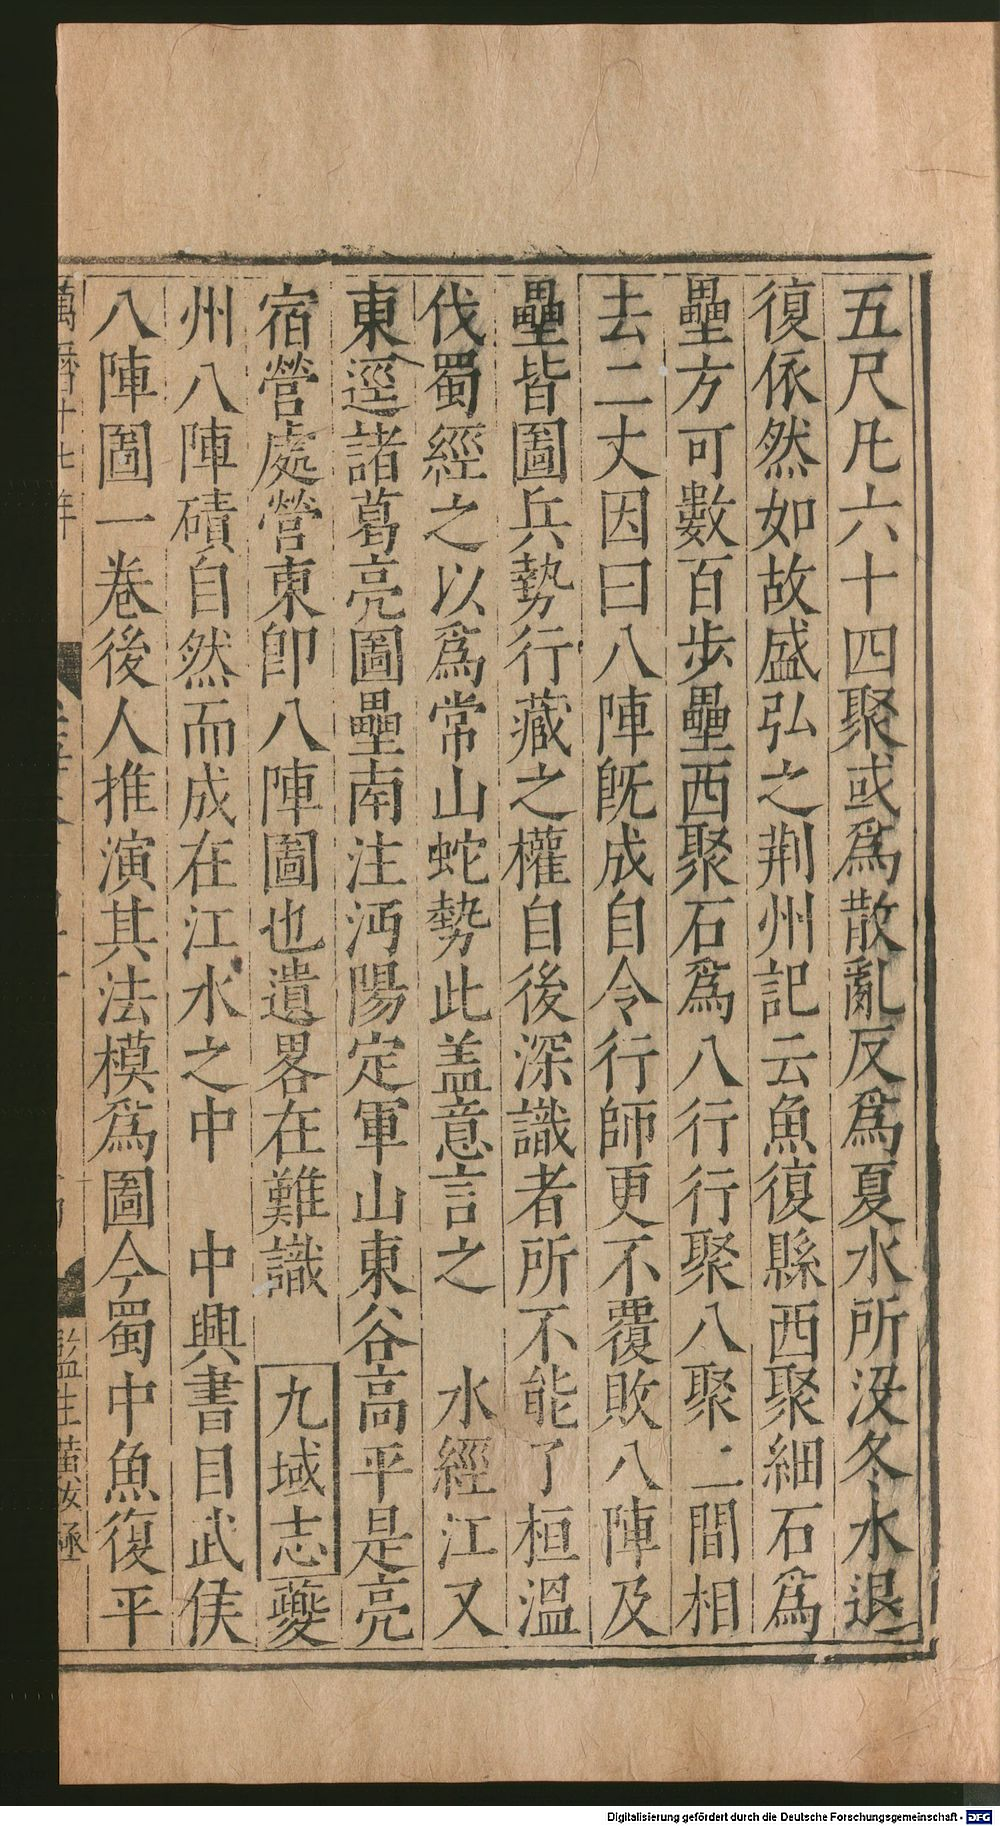 五尺凡六十四聚或爲散亂反爲夏水所沒冬水退
復依然如故盛弘之荆州記云魚復縣西聚細石爲
壘方可數百步壘西聚石爲八行行聚八聚二間相
去二丈因曰八陣旣成自令行師更不覆敗八陣及
壘皆圖兵勢行藏之權自後深識者所不能了桓溫
伐蜀經之以爲常山蛇勢此盖意言之　水經江又
東逕諸葛亮圖壘南注沔陽定軍山東谷高平是亮
宿營處營東卽八陣圖也遺畧在難識　九域志夔
州八陣磧自然而成在江水之中　中興書目武侯
八陣圖一卷後人推演其法模爲圖今蜀中魚復平
萬曆十七年
監生
Digitalisierung gefördert durch die Deutsche Forschungsgemeinschaft - DFG